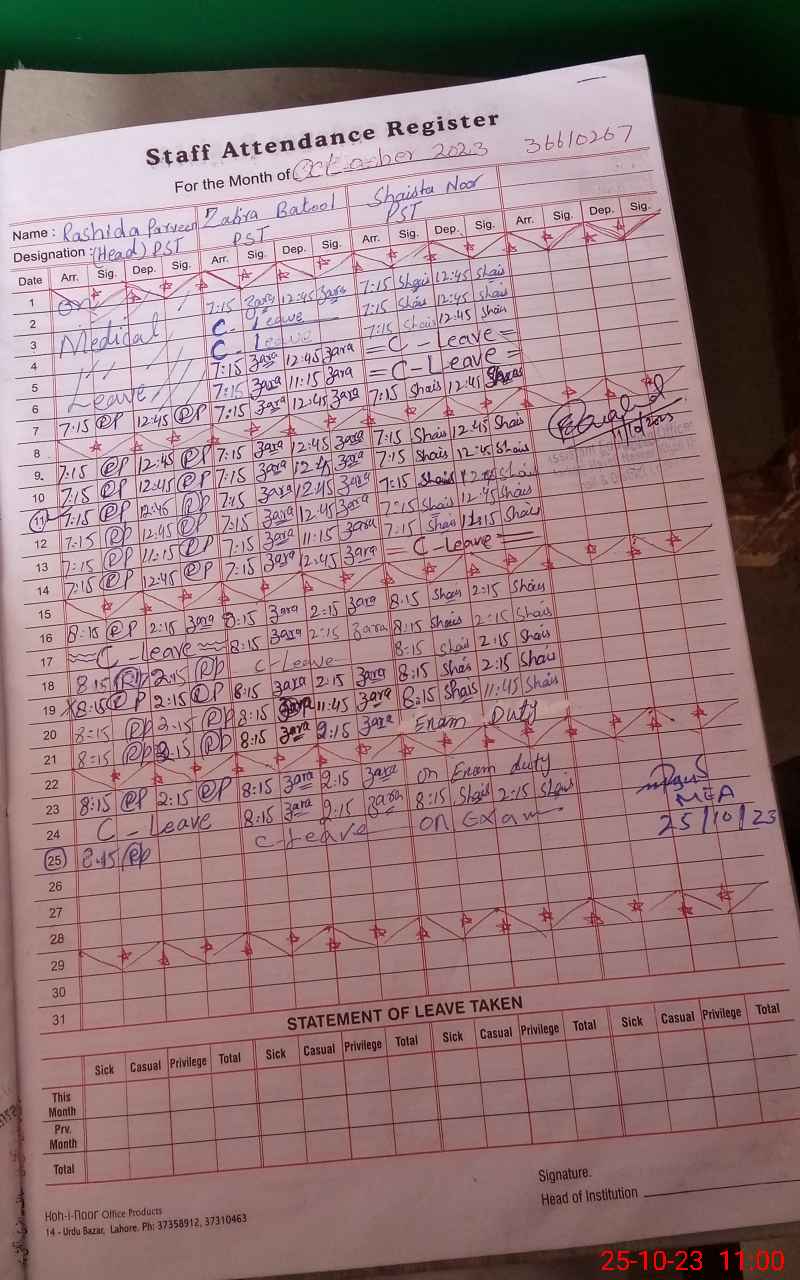 Staff Attendance Register
For the Month of October 2023 36610267
Name : Rashida Parveen Zahra Batool Shaista Noor
Designation : (Head) PST PST PST
Date Arr. Sig. Dep. Sig. Arr. Sig. Dep. Sig. Arr. Sig. Dep. Sig. Arr. Sig. Dep. Sig.
1
2 On 7:15 Zara 12:45 Zara 7:15 Shais 12:45 Shais
3 Medical C - Leave 7:15 Shais 12:45 Shais
4 C - Leave 7:15 Shais 12:45 Shais
5 Leave 7:15 Zara 12:45 Zara = C - Leave =
6 7:15 Zara 11:15 Zara = C - Leave =
7 7:15 RP 12:45 RP 7:15 Zara 12:45 Zara 7:15 Shais 12:45 Shais
8
9 7:15 RP 12:45 RP 7:15 Zara 12:45 Zara 7:15 Shais 12:45 Shais
10 7:15 RP 12:45 RP 7:15 Zara 12:45 Zara 7:15 Shais 12:45 Shais
11 7:15 RP 12:45 RP 7:15 Zara 12:45 Zara 7:15 Shais 12:45 Shais
12 7:15 RP 12:45 RP 7:15 Zara 12:45 Zara 7:15 Shais 12:45 Shais
13 7:15 RP 11:15 RP 7:15 Zara 11:15 Zara 7:15 Shais 11:15 Shais
14 7:15 RP 12:45 RP 7:15 Zara 12:45 Zara = C - Leave =
15
16 8:15 RP 2:15 Zara 8:15 Zara 2:15 Zara 8:15 Shais 2:15 Shais
17 C - Leave 8:15 Zara 2:15 Zara 8:15 Shais 2:15 Shais
18 8:15 RP 2:15 RP C - Leave 8:15 Shais 2:15 Shais
19 8:15 RP 2:15 RP 8:15 Zara 2:15 Zara 8:15 Shais 2:15 Shais
20 8:15 RP 2:15 RP 8:15 Zara 11:45 Zara 8:15 Shais 11:45 Shais
21 8:15 RP 2:15 RP 8:15 Zara 2:15 Zara Exam Duty
22
23 8:15 RP 2:15 RP 8:15 Zara 2:15 Zara on Exam duty
24 C - Leave 8:15 Zara 2:15 Zara 8:15 Shais 2:15 Shais MEA
25 8:15 RP C - Leave ON Exam 25/10/23
26
27
28
29
30
31
STATEMENT OF LEAVE TAKEN
Sick Casual Privilege Total Sick Casual Privilege Total Sick Casual Privilege Total Sick Casual Privilege Total
This Month
Prv. Month
Total
Signature.
Head of Institution
Hoh-i-noor Office Products
14 - Urdu Bazar, Lahore. Ph: 37358912, 37310463
25-10-23 11:00